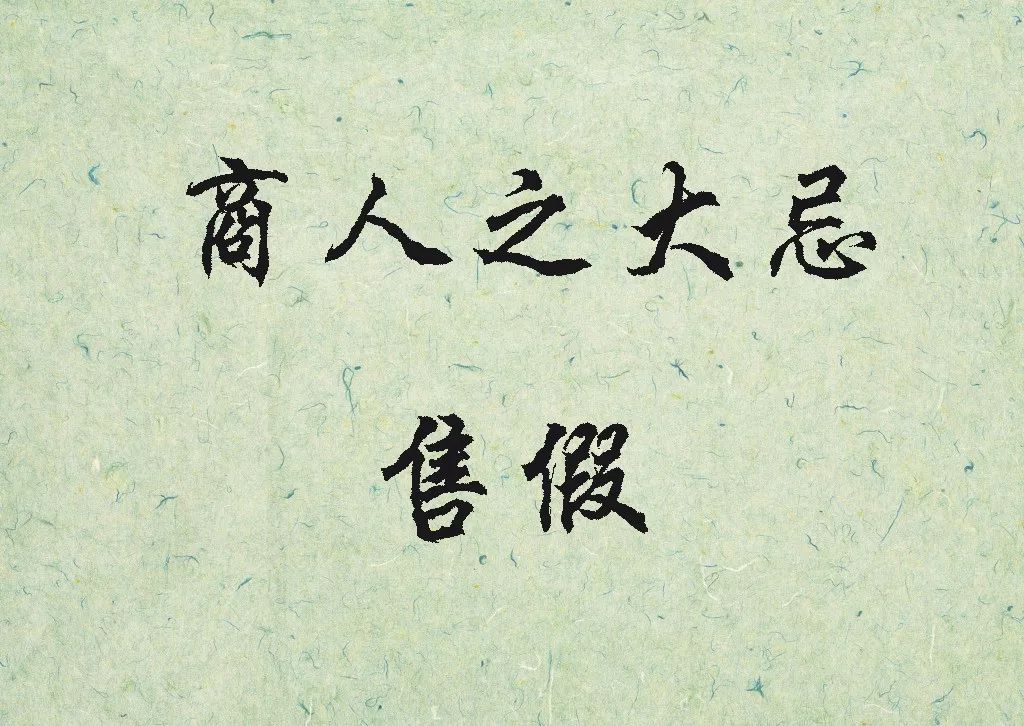 商人之大忌
售假